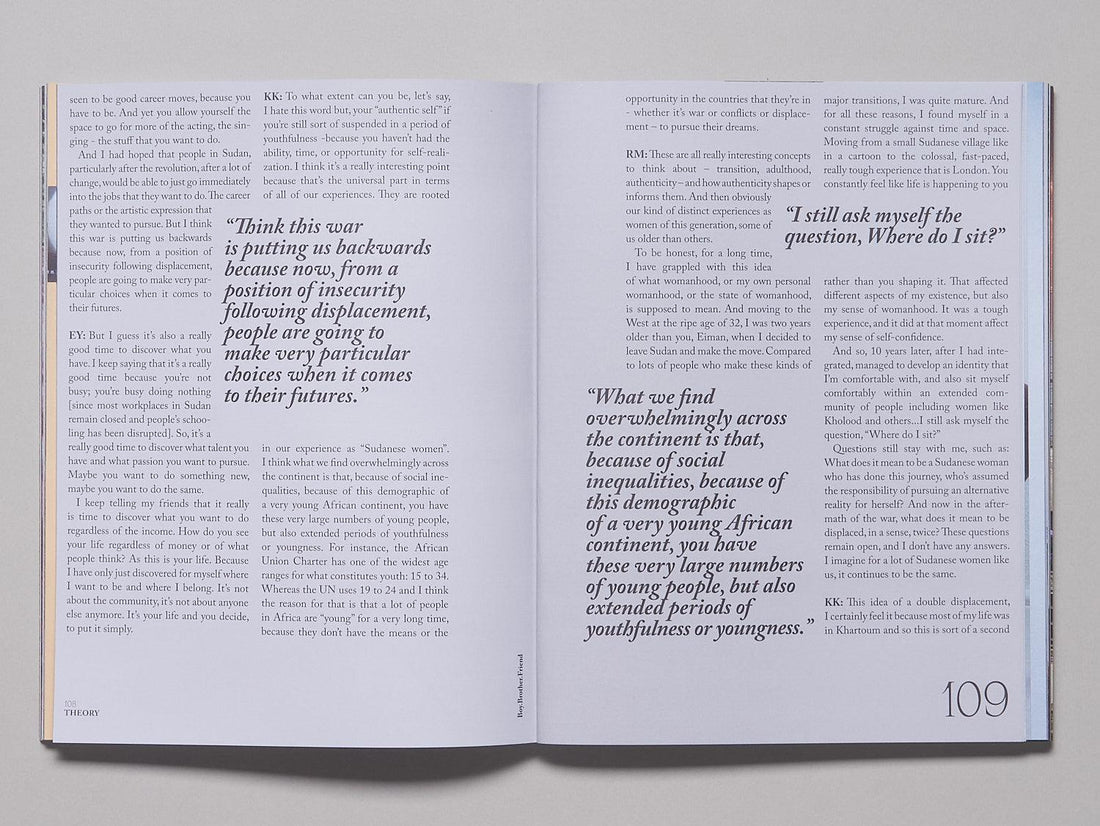 seen to be good career moves, because you
have to be. And yet you allow yourself the
space to go for more of the acting, the sin-
ging - the stuff that you want to do.
And I had hoped that people in Sudan,
particularly after the revolution, after a lot of
change, would be able to just go immediately
into the jobs that they want to do. The career
paths or the artistic expression that
they wanted to pursue. But I think
this war is putting us backwards
because now, from a position of
insecurity following displacement,
people are going to make very par-
ticular choices when it comes to
their futures.
EY: But I guess it's also a really
good time to discover what you
have. I keep saying that it's a really
good time because you're not
busy; you're busy doing nothing
[since most workplaces in Sudan
remain closed and people's schoo-
ling has been disrupted]. So, it's a
really good time to discover what talent you
have and what passion you want to pursue.
Maybe you want to do something new,
maybe you want to do the same.
I keep telling my friends that it really
is time to discover what you want to do
regardless of the income. How do you see
your life regardless of money or of what
people think? As this is your life. Because
I have only just discovered for myself where
I want to be and where I belong. It's not
about the community, it's not about anyone
else anymore. It's your life and you decide,
to put it simply.
KK: To what extent can you be, let's say,
I hate this word but, your "authentic self" if
you're still sort of suspended in a period of
youthfulness -because you haven't had the
ability, time, or opportunity for self-reali-
zation. I think it's a really interesting point
because that's the universal part in terms
of all of our experiences. They are rooted
"Think this war
is putting us backwards
because now, from a
position of insecurity
following displacement,
people are going to
make very particular
choices when it comes
to their futures."
in our experience as "Sudanese women".
I think what we find overwhelmingly across
the continent is that, because of social ine-
qualities, because of this demographic of
a very young African continent, you have
these very large numbers of young people,
but also extended periods of youthfulness
or youngness. For instance, the African
Union Charter has one of the widest age
ranges for what constitutes youth: 15 to 34.
Whereas the UN uses 19 to 24 and I think
the reason for that is that a lot of people
in Africa are "young" for a very long time,
because they don't have the means or the
108
THEORY
Boy.Brother.Friend
opportunity in the countries that they're in
- whether it's war or conflicts or displace-
ment – to pursue their dreams.
RM: These are all really interesting concepts
to think about – transition, adulthood,
authenticity – and how authenticity shapes or
informs them. And then obviously
our kind of distinct experiences as
women of this generation, some of
us older than others.
To be honest, for a long time,
I have grappled with this idea
of what womanhood, or my own personal
womanhood, or the state of womanhood,
is supposed to mean. And moving to the
West at the ripe age of 32, I was two years
older than you, Eiman, when I decided to
leave Sudan and make the move. Compared
to lots of people who make these kinds of
"What we find
overwhelmingly across
the continent is that,
because of social
inequalities, because of
this demographic
of a very young African
continent, you have
these very large numbers
of young people, but also
extended periods of
youthfulness or youngness."
major transitions, I was quite mature. And
for all these reasons, I found myself in a
constant struggle against time and space.
Moving from a small Sudanese village like
in a cartoon to the colossal, fast-paced,
really tough experience that is London. You
constantly feel like life is happening to you
"I still ask myself the
question, Where do I sit?"
rather than you shaping it. That affected
different aspects of my existence, but also
my sense of womanhood. It was a tough
experience, and it did at that moment affect
my sense of self-confidence.
And so, 10 years later, after I had inte-
grated, managed to develop an identity that
I'm comfortable with, and also sit myself
comfortably within an extended com-
munity of people including women like
Kholood and others...I still ask myself the
question, "Where do I sit?"
Questions still stay with me, such as:
What does it mean to be a Sudanese woman
who has done this journey, who's assumed
the responsibility of pursuing an alternative
reality for herself? And now in the after-
math of the war, what does it mean to be
displaced, in a sense, twice? These questions
remain open, and I don't have any answers.
I imagine for a lot of Sudanese women like
us, it continues to be the same.
KK: This idea of a double displacement,
I certainly feel it because most of my life was
in Khartoum and so this is sort of a second
109